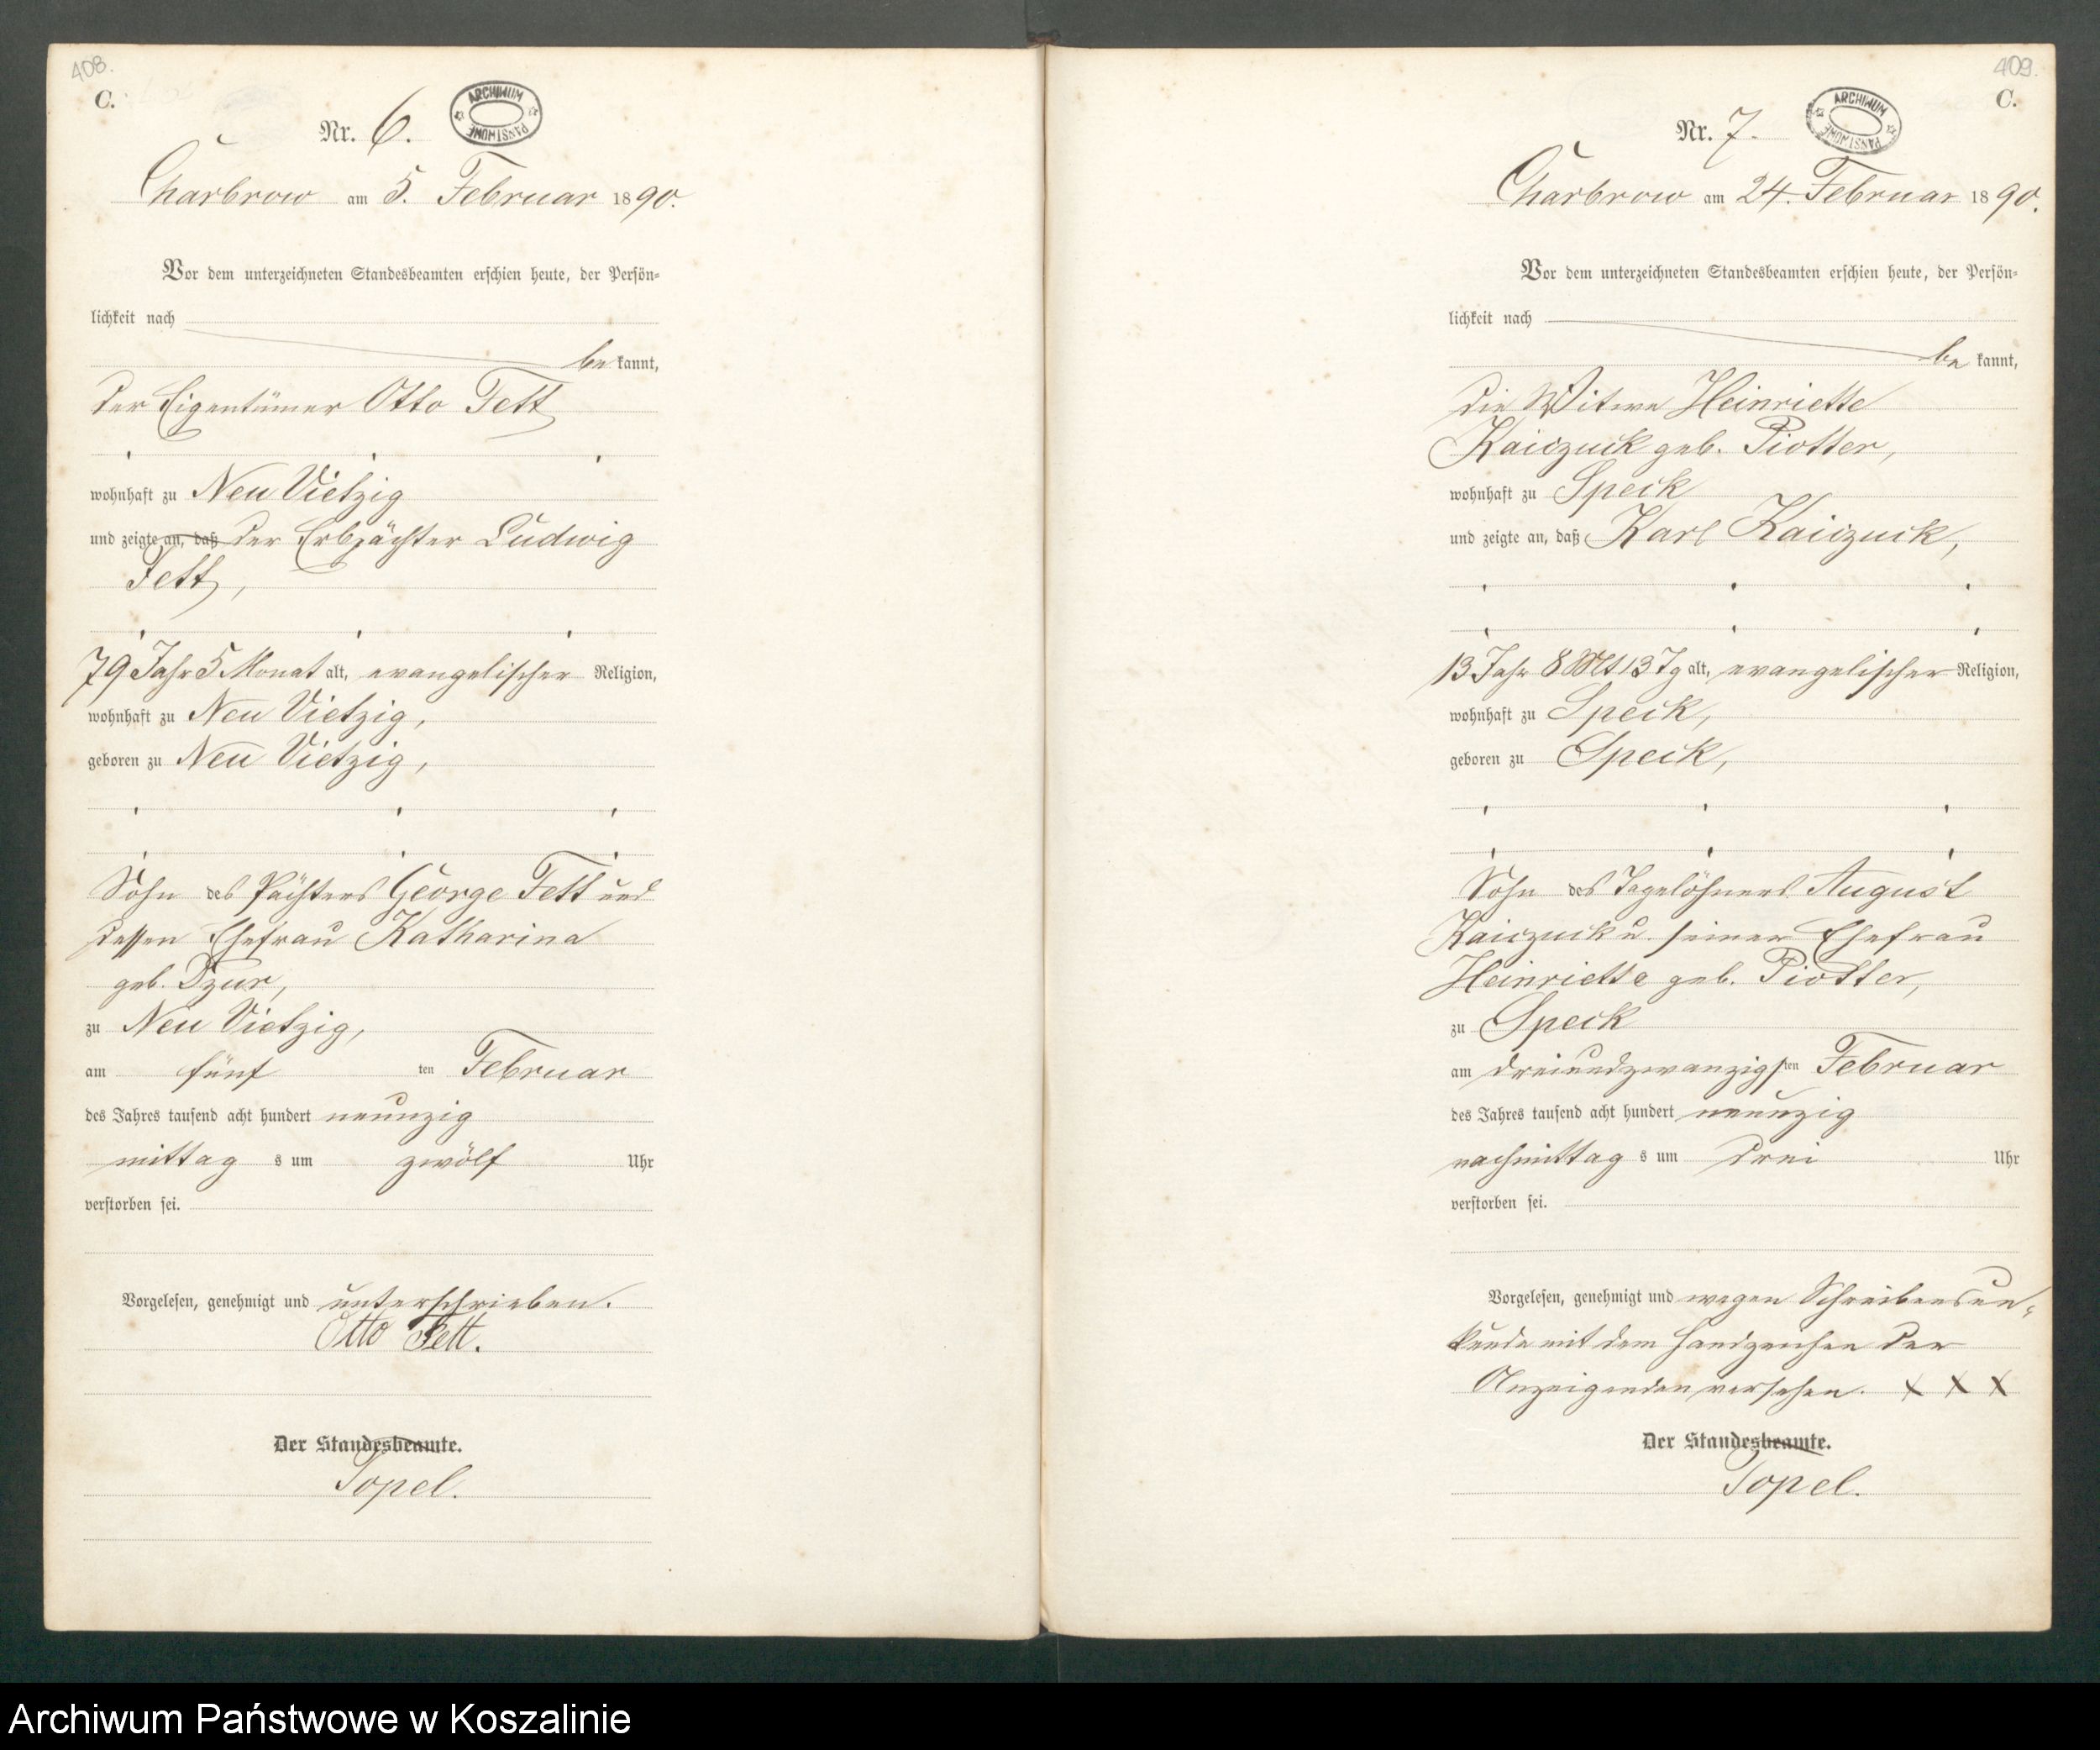 408.
C.
Nr. 6.
ARCHIWUM PAŃSTWOWE
Charbrow am 5. Februar 1890.
Vor dem unterzeichneten Standesbeamten erschien heute, der Persön-
lichkeit nach
be kannt,
der Eigentümer Otto Fett
wohnhaft zu Neu Vietzig
und zeigte an, daß der Erbpächter Ludwig
Fett,
79 Jahr 5 Monat alt, evangelischer Religion,
wohnhaft zu Neu Vietzig,
geboren zu Neu Vietzig,
Sohn des Pächters George Fett und
dessen Ehefrau Katharina
geb. Dzur,
zu Neu Vietzig,
am fünf ten Februar
des Jahres tausend acht hundert neunzig
mittag s um zwölf Uhr
verstorben sei.
Vorgelesen, genehmigt und unterschrieben.
Otto Fett.
Der Standesbeamte.
Topel.
409.
C.
Nr. 7.
ARCHIWUM PAŃSTWOWE
Charbrow am 24. Februar 1890.
Vor dem unterzeichneten Standesbeamten erschien heute, der Persön-
lichkeit nach
be kannt,
die Witwe Heinriette
Kaiczuck geb. Piotter,
wohnhaft zu Speck
und zeigte an, daß Karl Kaiczuck,
13 Jahr 8 Mt 13 Tg alt, evangelischer Religion,
wohnhaft zu Speck,
geboren zu Speck,
Sohn des Tagelöhners August
Kaiczuck u. seiner Ehefrau
Heinriette geb. Piotter,
zu Speck
am dreiundzwanzigsten Februar
des Jahres tausend acht hundert neunzig
nachmittag s um drei Uhr
verstorben sei.
Vorgelesen, genehmigt und wegen Schreibensun-
kunde mit dem Handzeichen der
Anzeigenden versehen. X X X
Der Standesbeamte.
Topel.
Archiwum Państwowe w Koszalinie